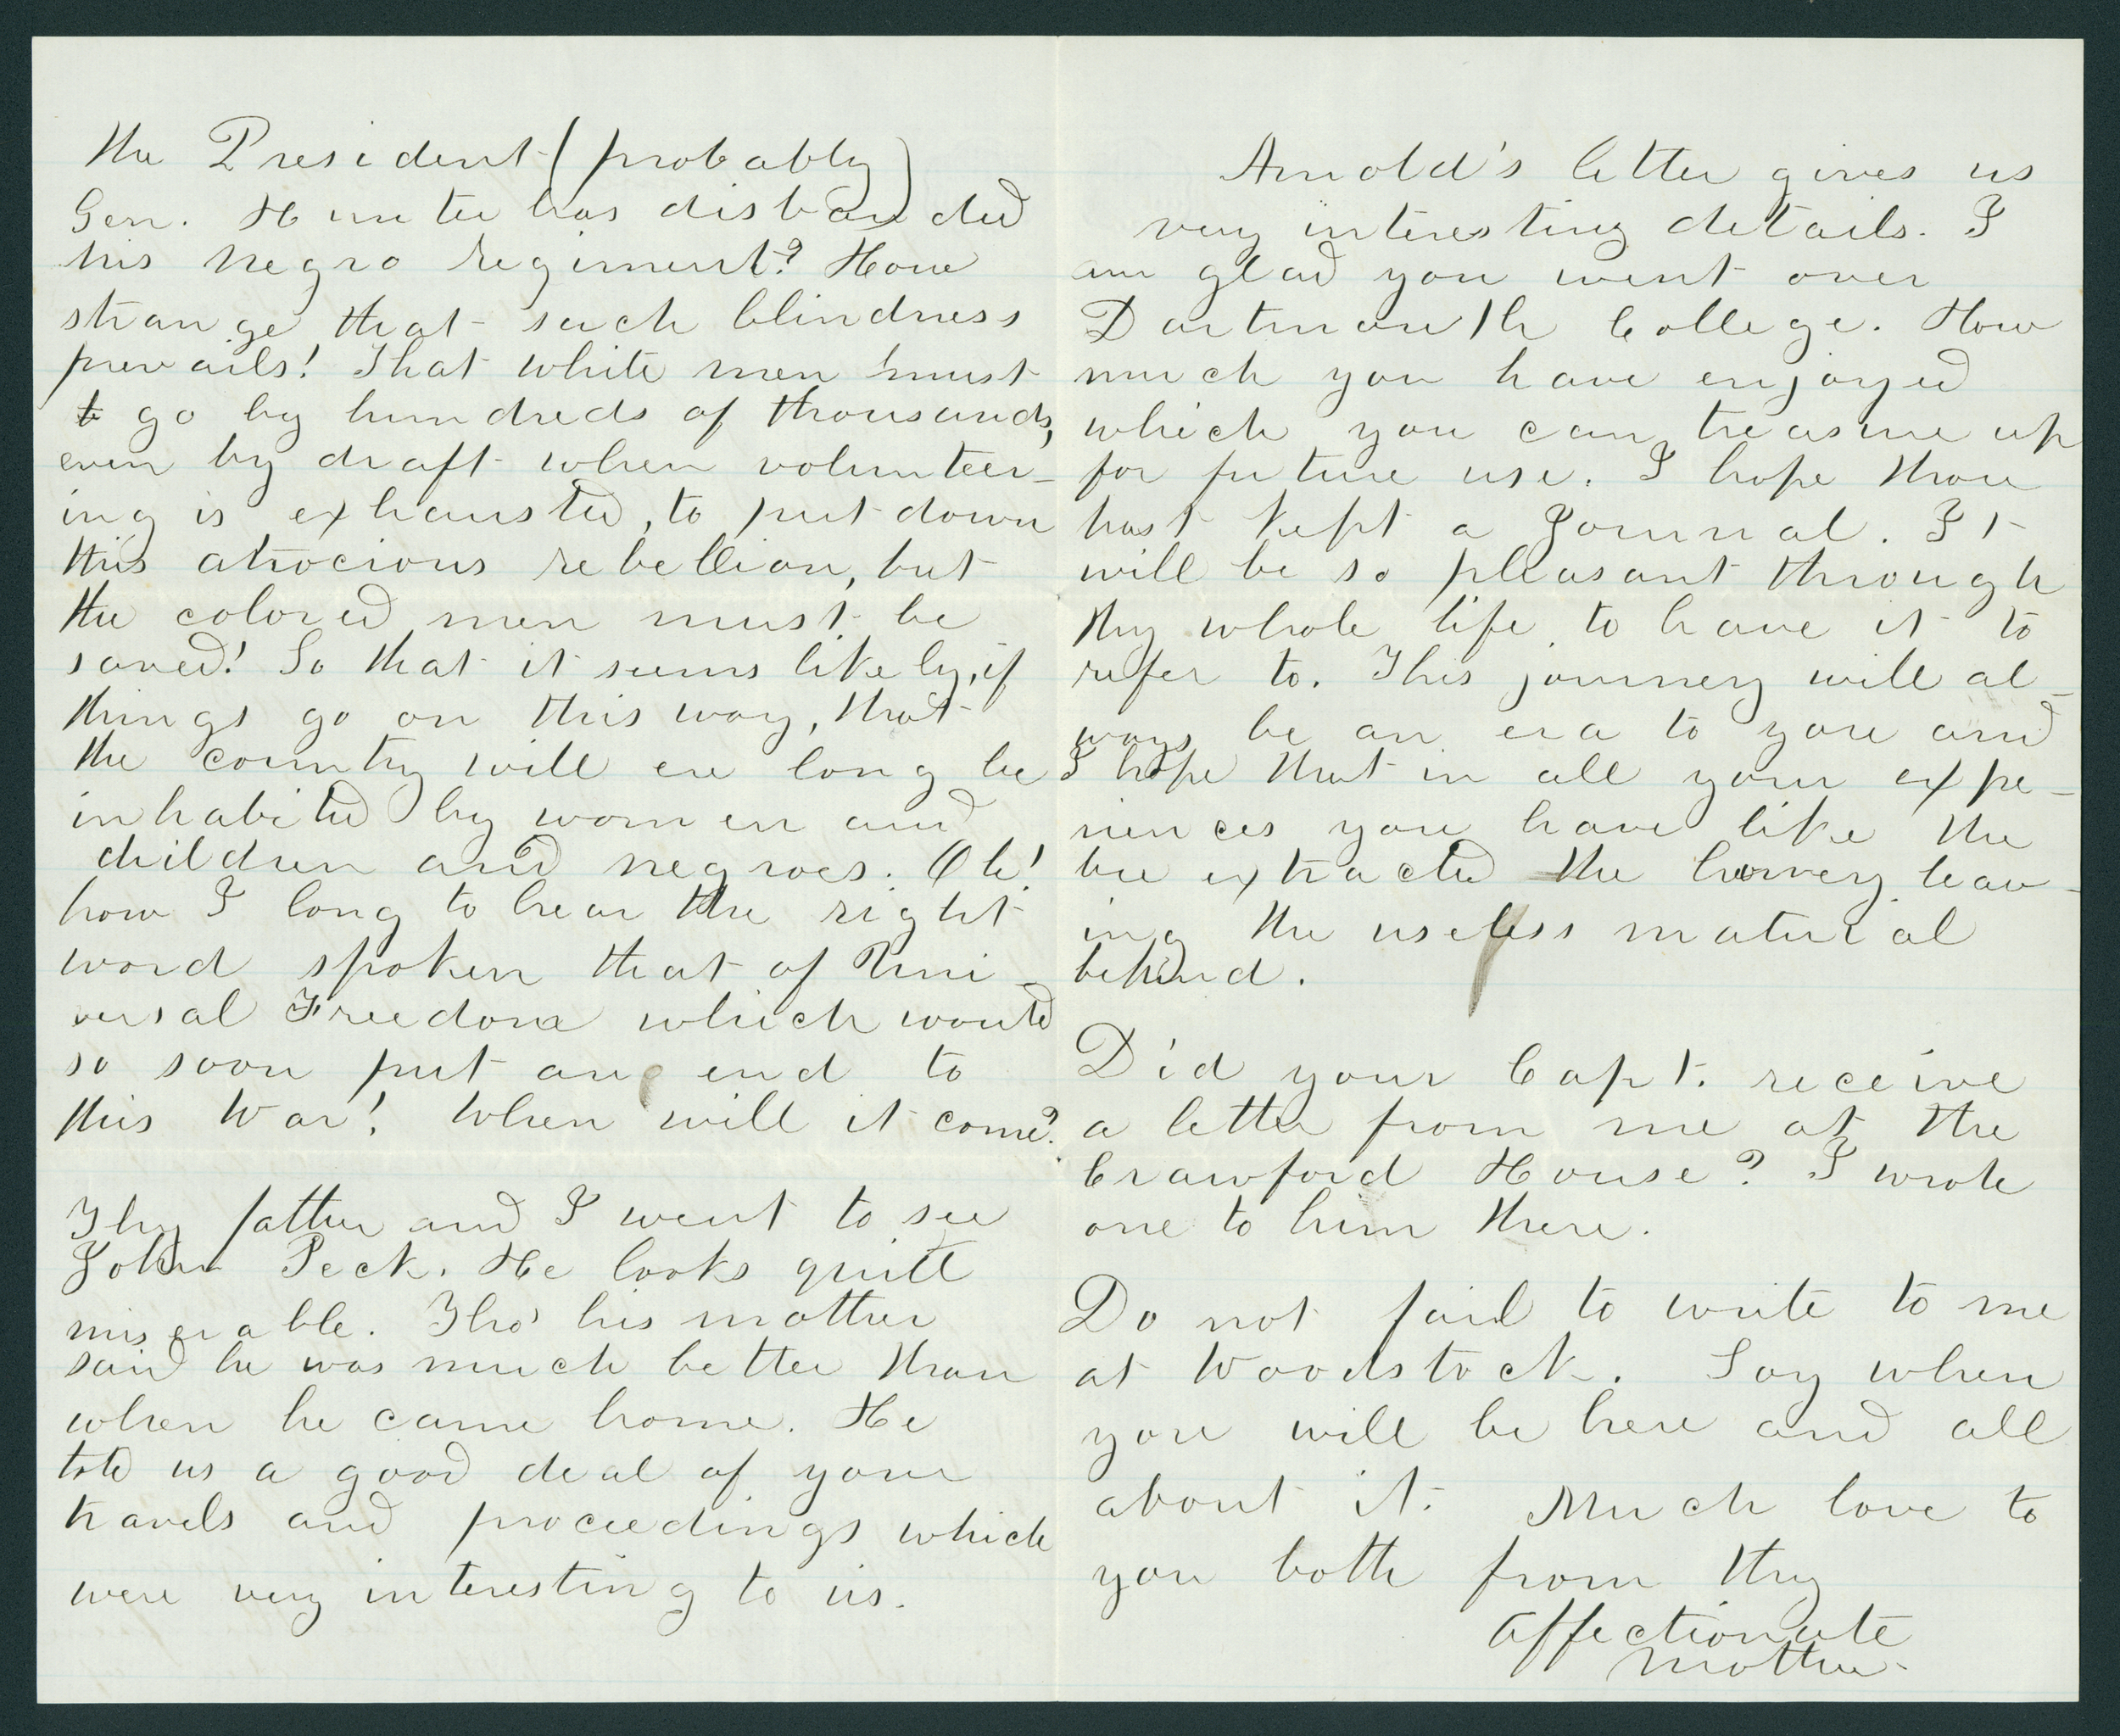 the President (probably)
Gen. Hunter has disbanded
his negro regiment? How
strange that such blindness
prevails! That white men must
to go by hundreds of thousands,
even by draft when volunteer-
ing is exhausted, to put down
this atrocious rebellion, but
the colored men must be
saved! So that it seems likely, if
things go on this way, that
the country will ere long be
inhabited by women and
children and negroes. Oh!
how I long to hear the right
word spoken that of Uni-
versal Freedom which would
so soon put an end to
this War! When will it come?
Thy father and I went to see
John Peck. He looks quite
miserable. Tho' his mother
said he was much better than
when he came home. He
told us a good deal of your
travels and proceedings which
were very interesting to us.
Arnold's letter gives us
very interesting details. I
am glad you went over
Dartmouth College. How
much you have enjoyed
which you can treasure up
for future use. I hope thou
hast kept a Journal. It
will be so pleasant through
thy whole life to have it to
refer to. This journey will al-
ways be an era to you and
I hope that in all your expe-
riences you have like the
bee extracted the honey leav-
ing the useless material
behind.
Did your Capt. receive
a letter from me at the
Crawford House? I wrote
one to him there.
Do not fail to write to me
at Woodstock. Say when
you will be here and all
about it. Much love to
you both from thy
affectionate
mother.